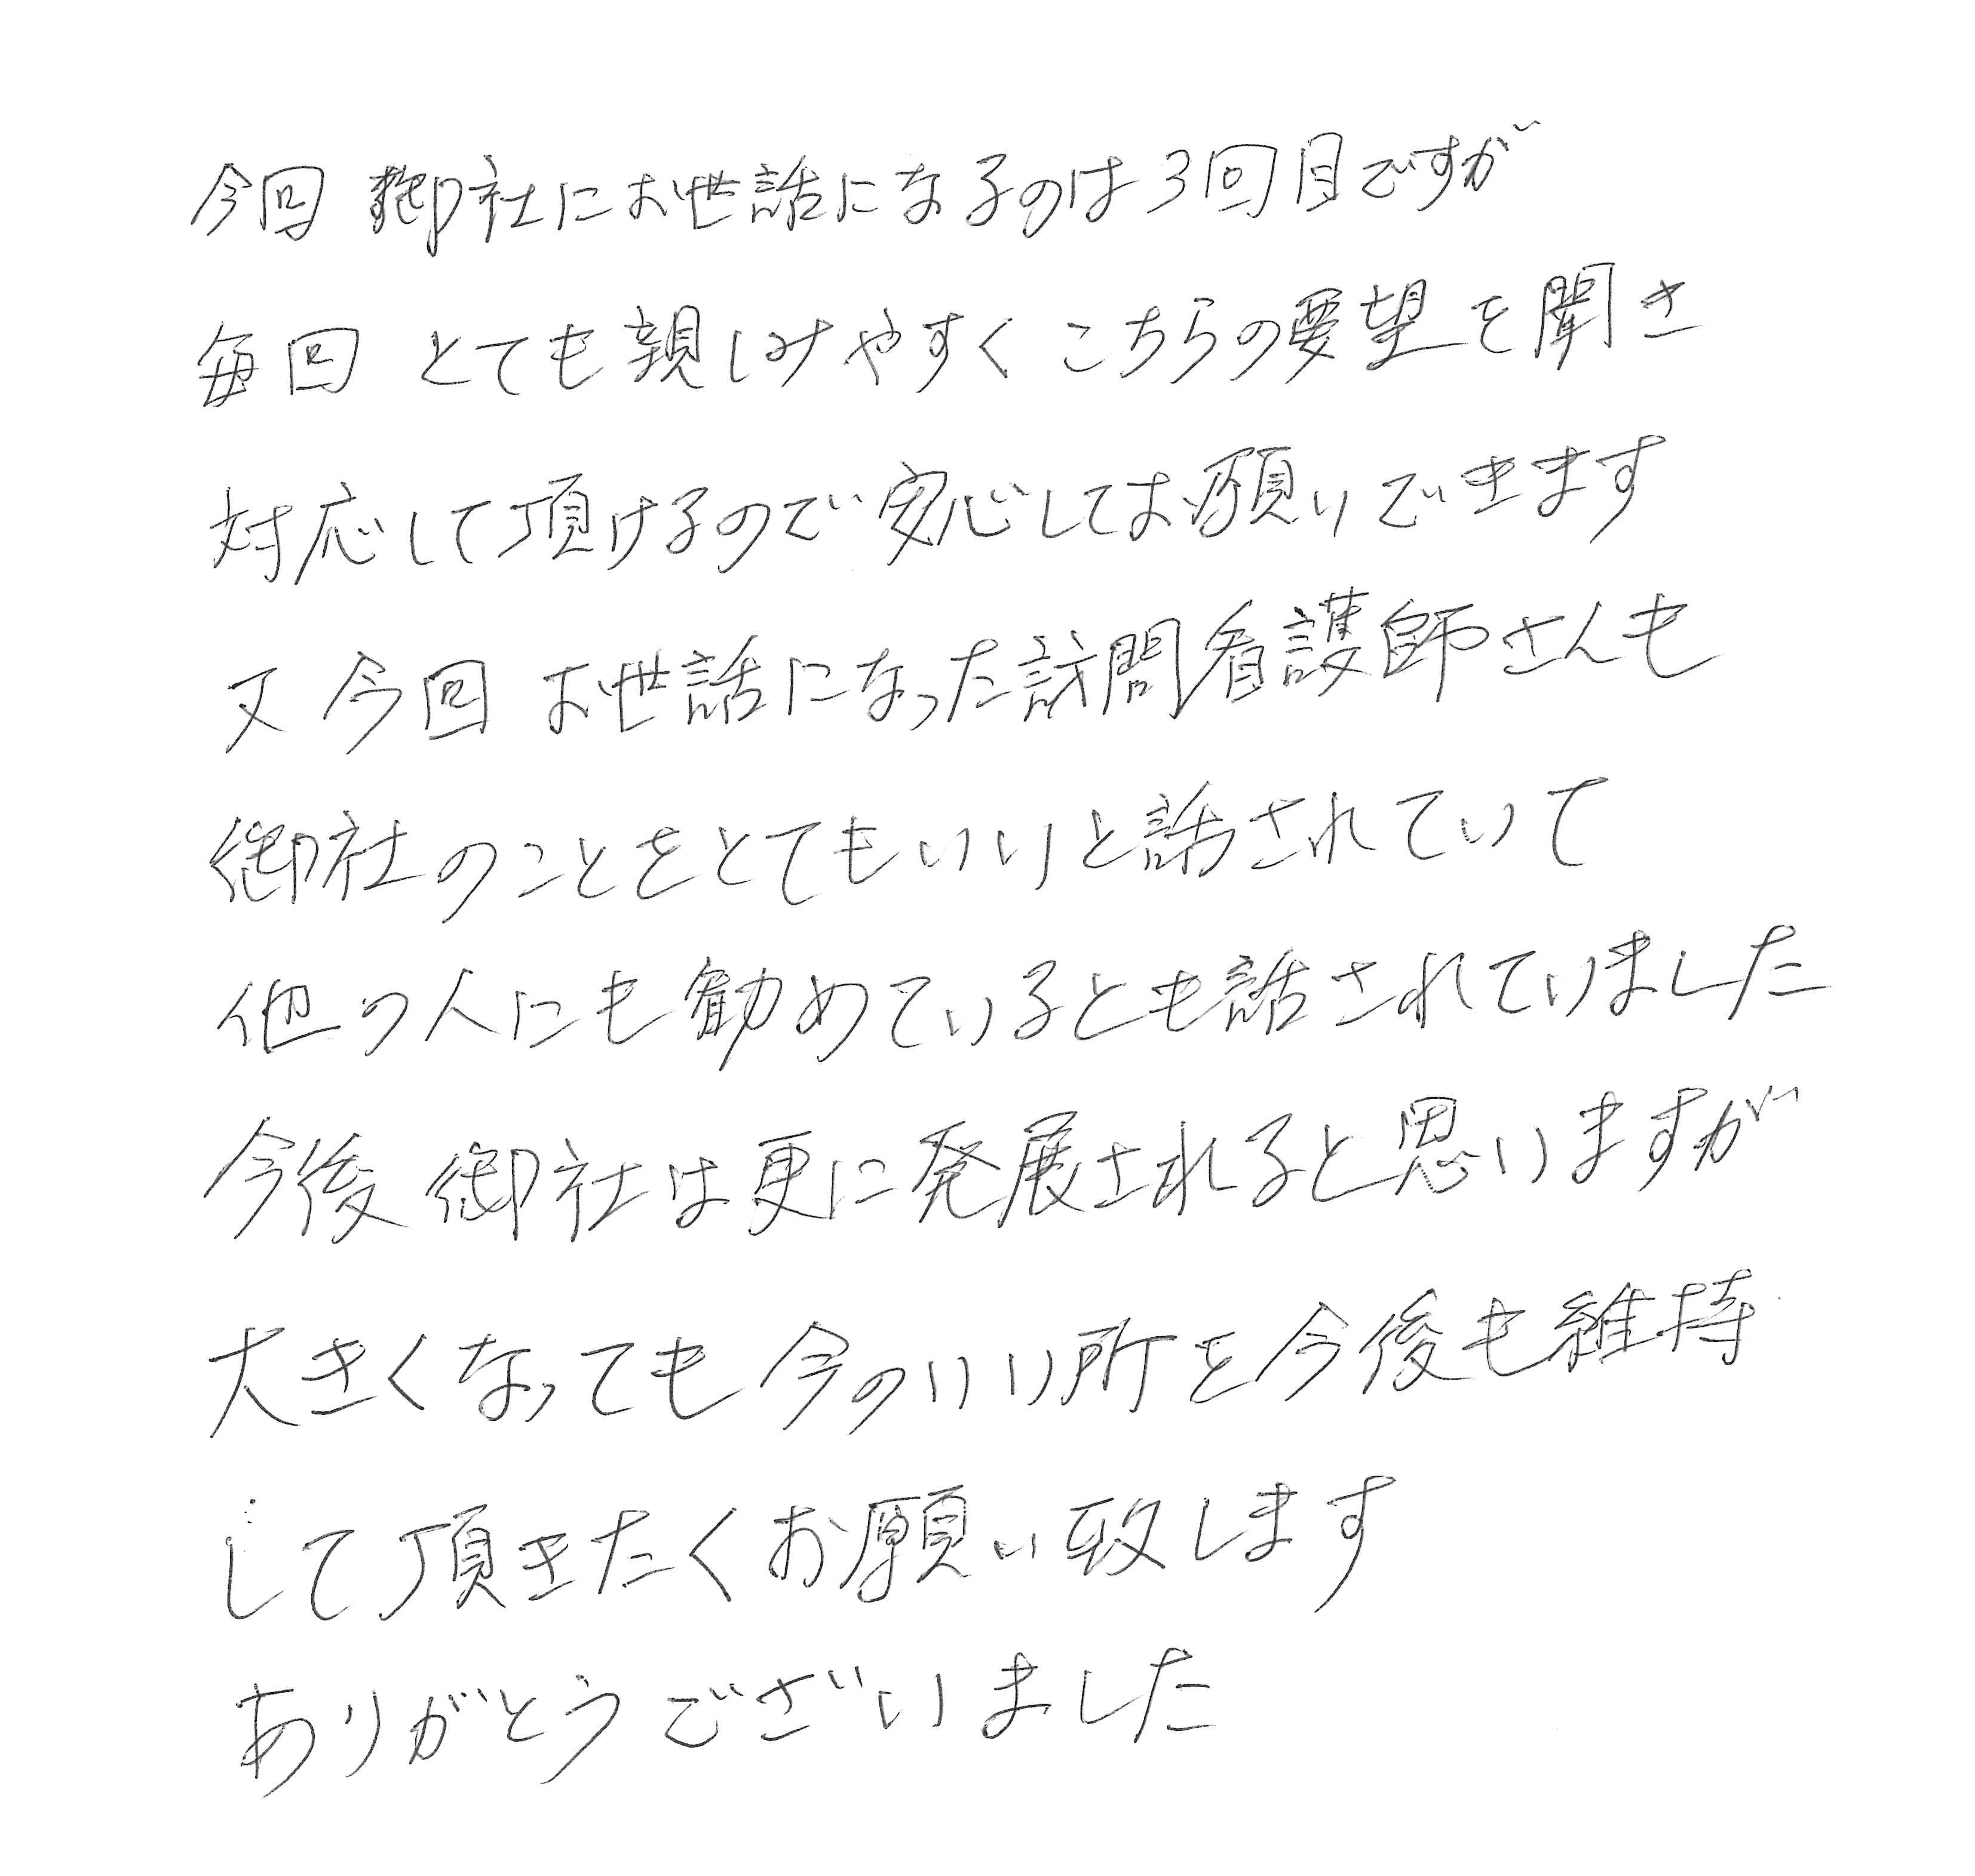 今回 御社にお世話になるのは3回目ですが
毎回 とても親しみやすく こちらの要望を聞き
対応して頂けるので安心してお願いできます
又 今回 お世話になった訪問看護師さんも
御社のことをとてもいいと話されていて
他の人にも勧めているとも話されていました
今後 御社は更に発展されると思いますが
大きくなっても今のいい所を今後も維持
して頂きたくお願い致します
ありがとうございました